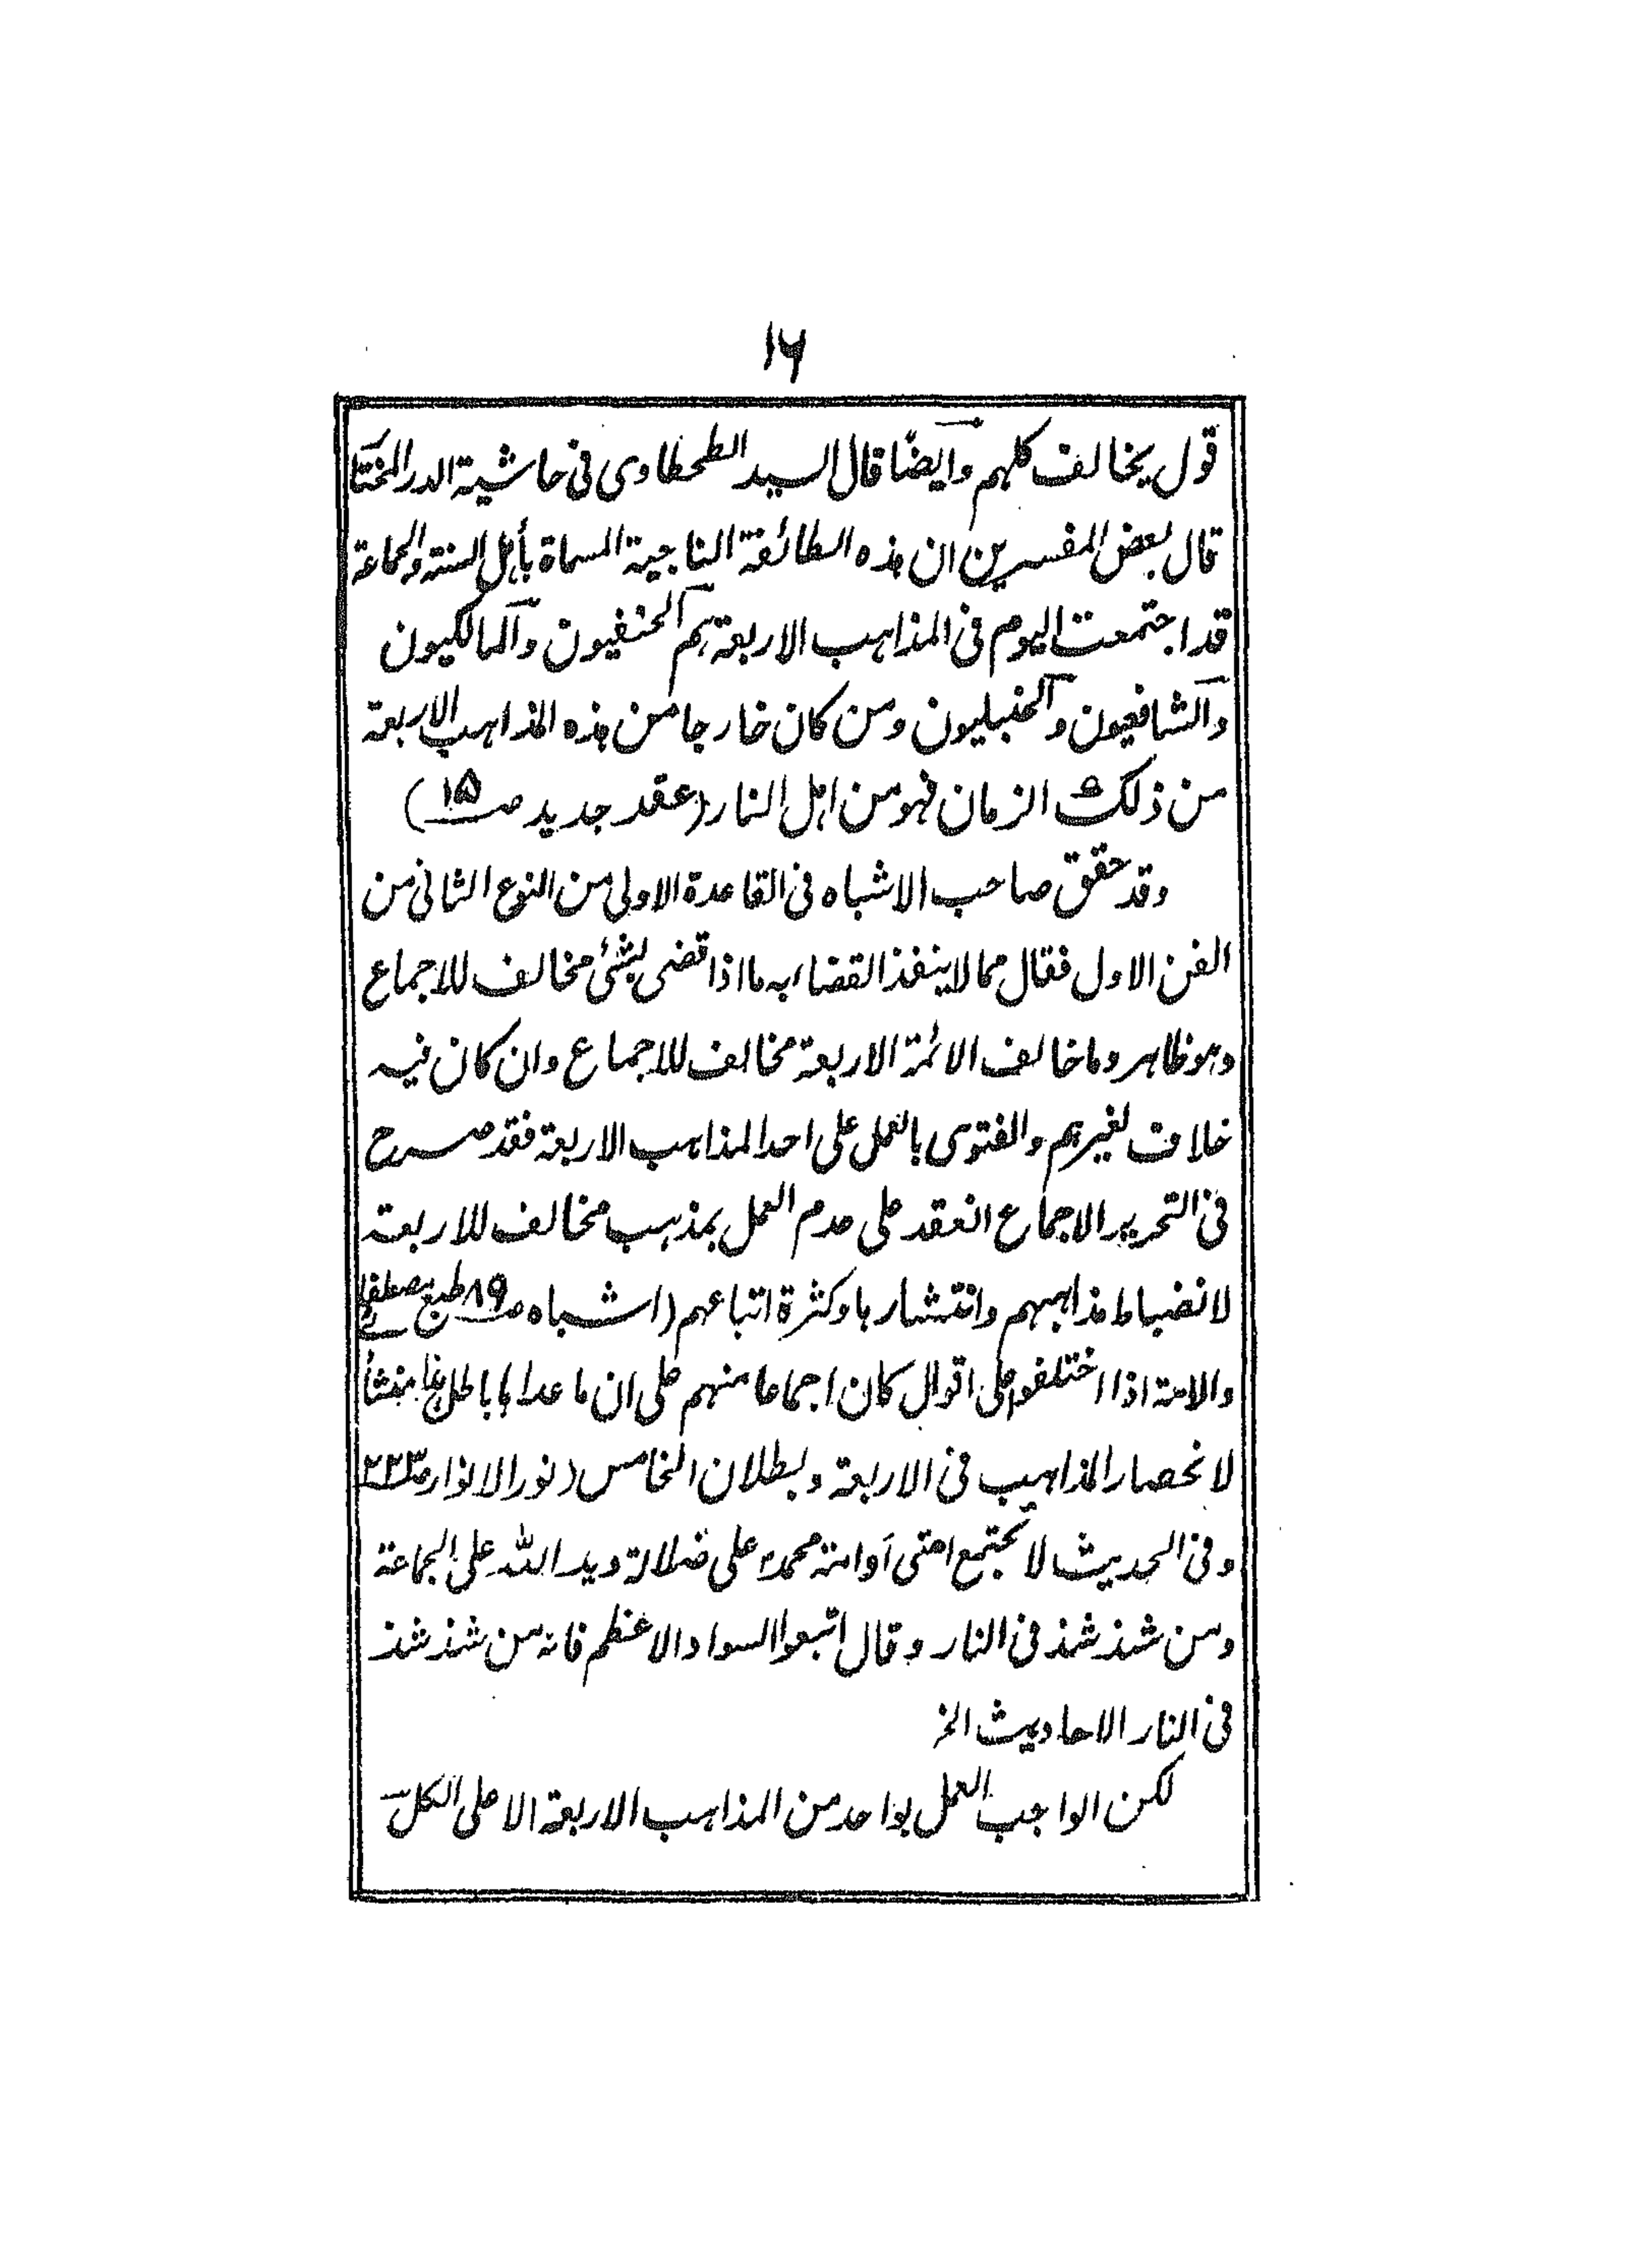 ۱۶
قول يخالف كلهم وايضًا قال السيد الطحطاوى فى حاشية الدر المختا
قال بعض المفسرين ان هذه الطائفة الناجية المسماة بأهل السنة والجماعة
قد اجتمعت اليوم فى المذاهب الاربعة هم الحنفيون والمالكيون
والشافعيون والحنبليون ومن كان خارجا من هذه المذاهب الاربعة
من ذلك الزمان فهو من اهل النار (عقد جديد صـ ۱۵)
وقد حقق صاحب الاشباه فى القاعدة الاولى من النوع الثانى من
الفن الاول فقال مما لا ينفذ القضاء به ما اذا قضى بشئ مخالف للاجماع
وهو ظاهر وما خالف الائمة الاربعة مخالف للاجماع وان كان فيه
خلاف لغيرهم والفتوى بالعمل على احد المذاهب الاربعة فقد صرح
فى التحرير الاجماع انعقد على عدم العمل بمذهب مخالف للاربعة
لانضباط مذاهبهم وانتشارها وكثرة اتباعهم (اشباه صـ ۸۹ طبع مصطفائے
والامة اذا اختلفوا على اقوال كان اجماعا منهم على ان ما عداها باطل هذا منشأ
لانحصار المذاهب فى الاربعة وبطلان الخامس (نور الانوار صـ ۲۲۳
وفى الحديث لا تجتمع امتى اوامة محمدؐ على ضلالة ويد الله على الجماعة
ومن شذ شذ فى النار وقال اتبعوا السواد الاعظم فانه من شذ شذ
فى النار الاحاديث الخ
لكن الواجب العمل بواحد من المذاهب الاربعة الا على الكل